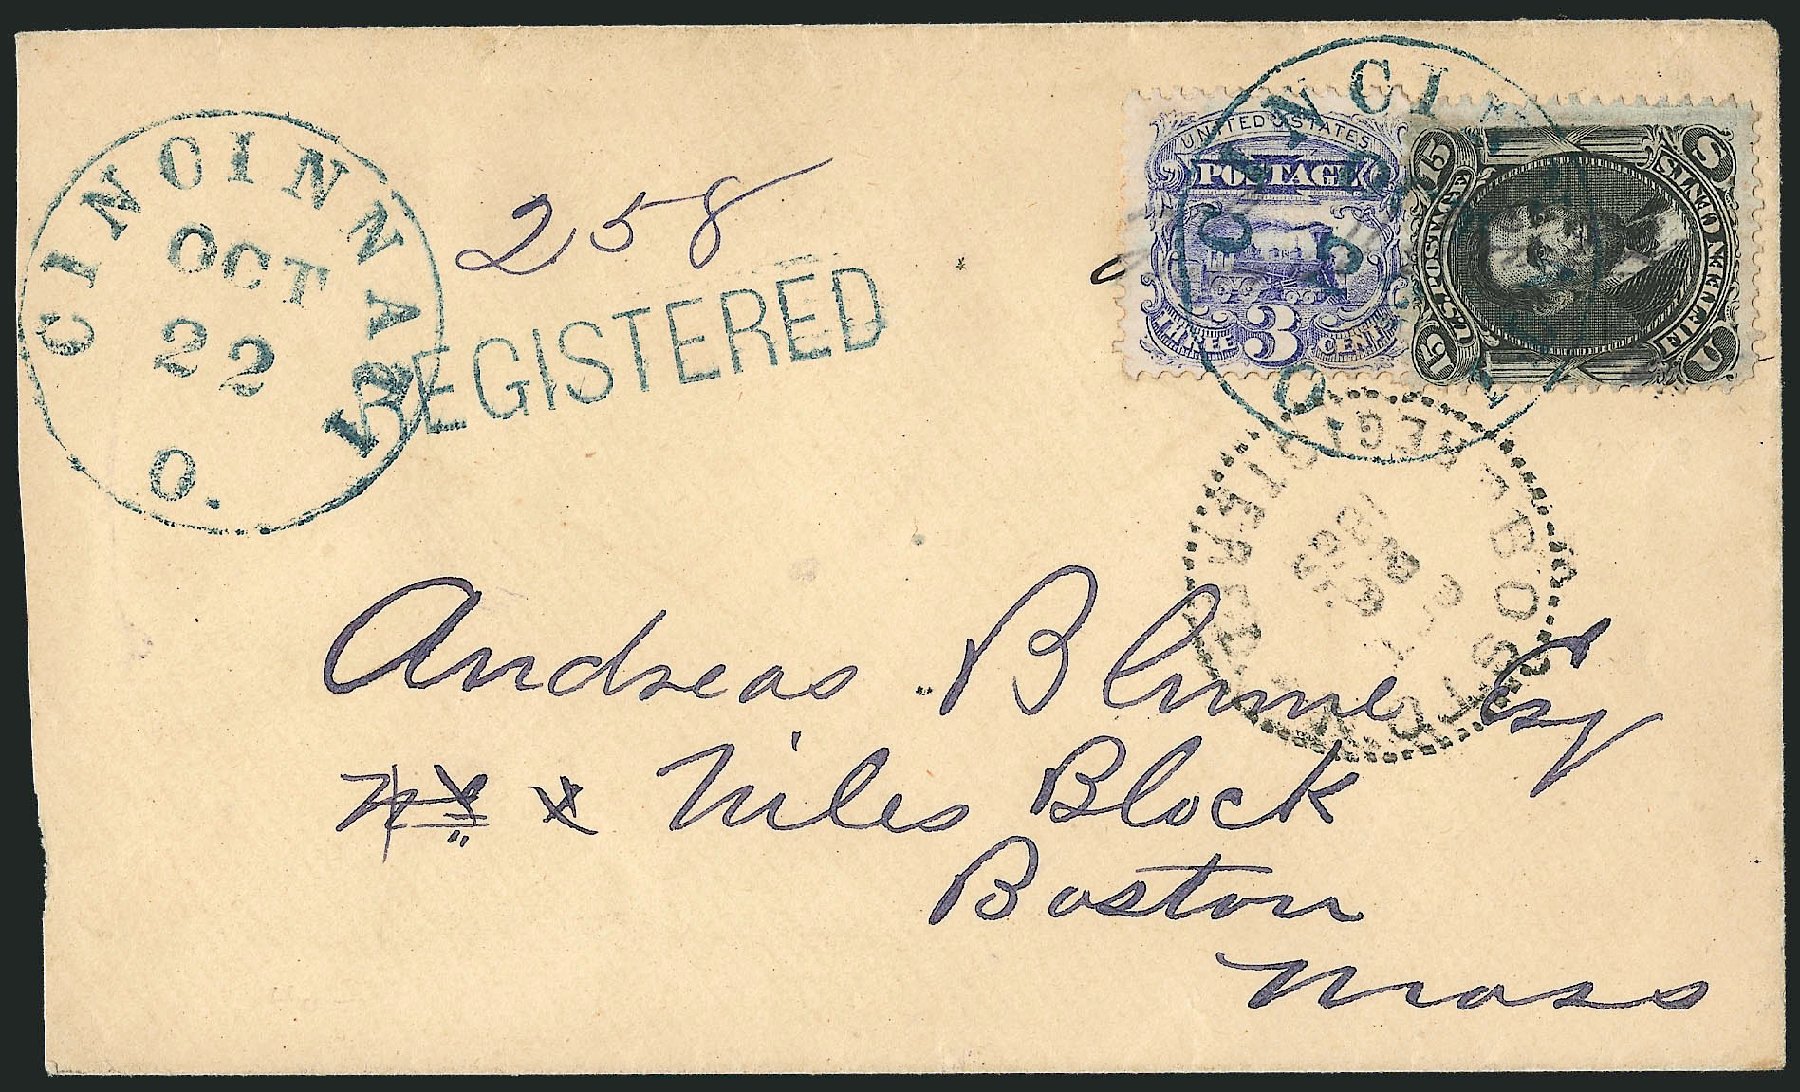 CINCINNATI
OCT
22
O.
258
REGISTERED
UNITED STATES
POSTAGE
THREE 3 CENTS
U.S. POSTAGE
15 15
FIFTEEN CENTS
U S
CINCINNATI
OCT
O.
BOSTON REGISTERED
Andreas Blume Esq
Niles Block
Boston
Mass